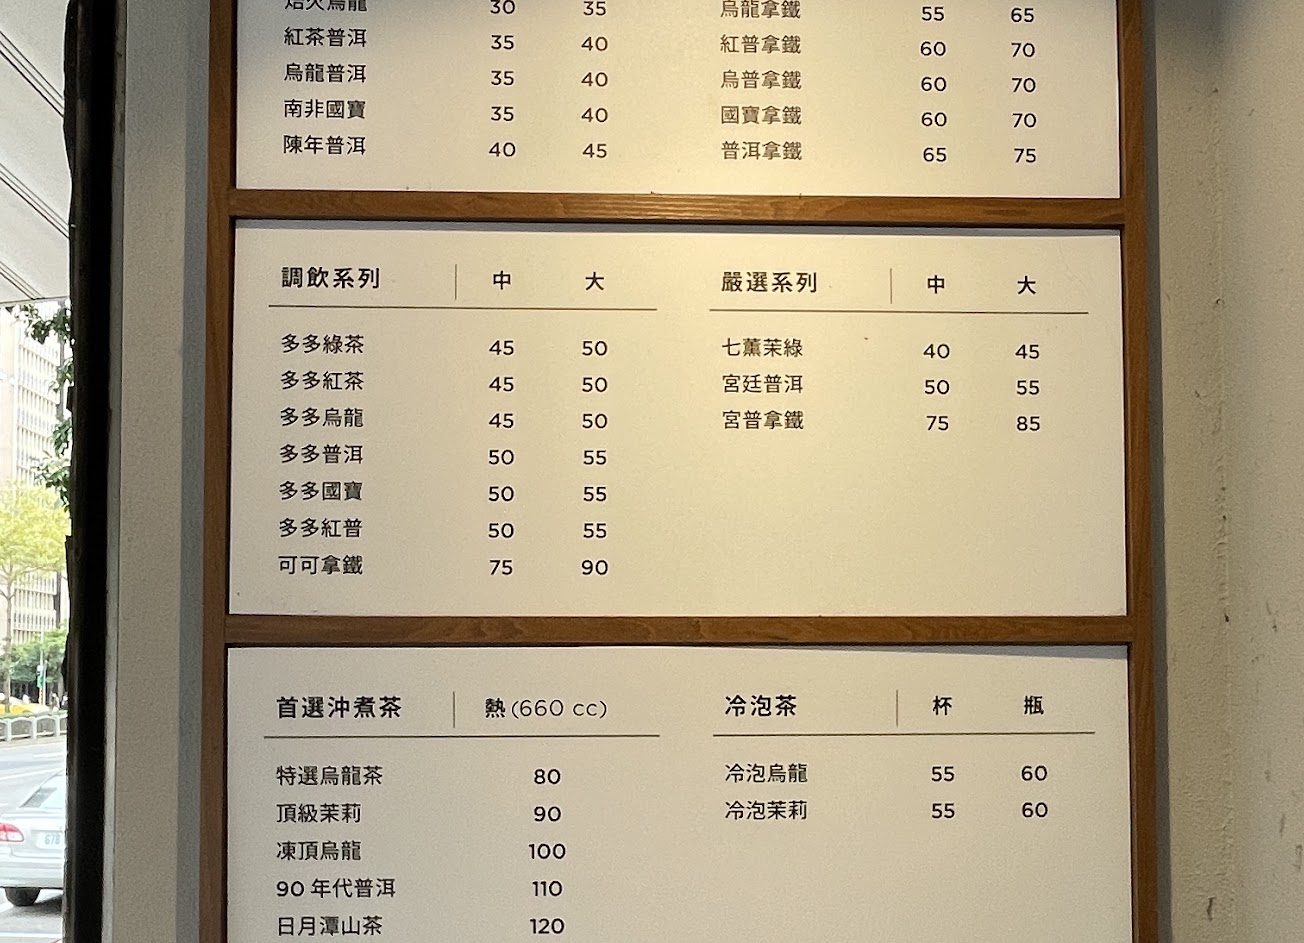 焙火烏龍 30 35
紅茶普洱 35 40
烏龍普洱 35 40
南非國寶 35 40
陳年普洱 40 45
烏龍拿鐵 55 65
紅普拿鐵 60 70
烏普拿鐵 60 70
國寶拿鐵 60 70
普洱拿鐵 65 75
調飲系列 中 大
多多綠茶 45 50
多多紅茶 45 50
多多烏龍 45 50
多多普洱 50 55
多多國寶 50 55
多多紅普 50 55
可可拿鐵 75 90
嚴選系列 中 大
七薰茉綠 40 45
宮廷普洱 50 55
宮普拿鐵 75 85
首選沖煮茶 熱(660 cc)
特選烏龍茶 80
頂級茉莉 90
凍頂烏龍 100
90 年代普洱 110
日月潭山茶 120
冷泡茶 杯 瓶
冷泡烏龍 55 60
冷泡茉莉 55 60